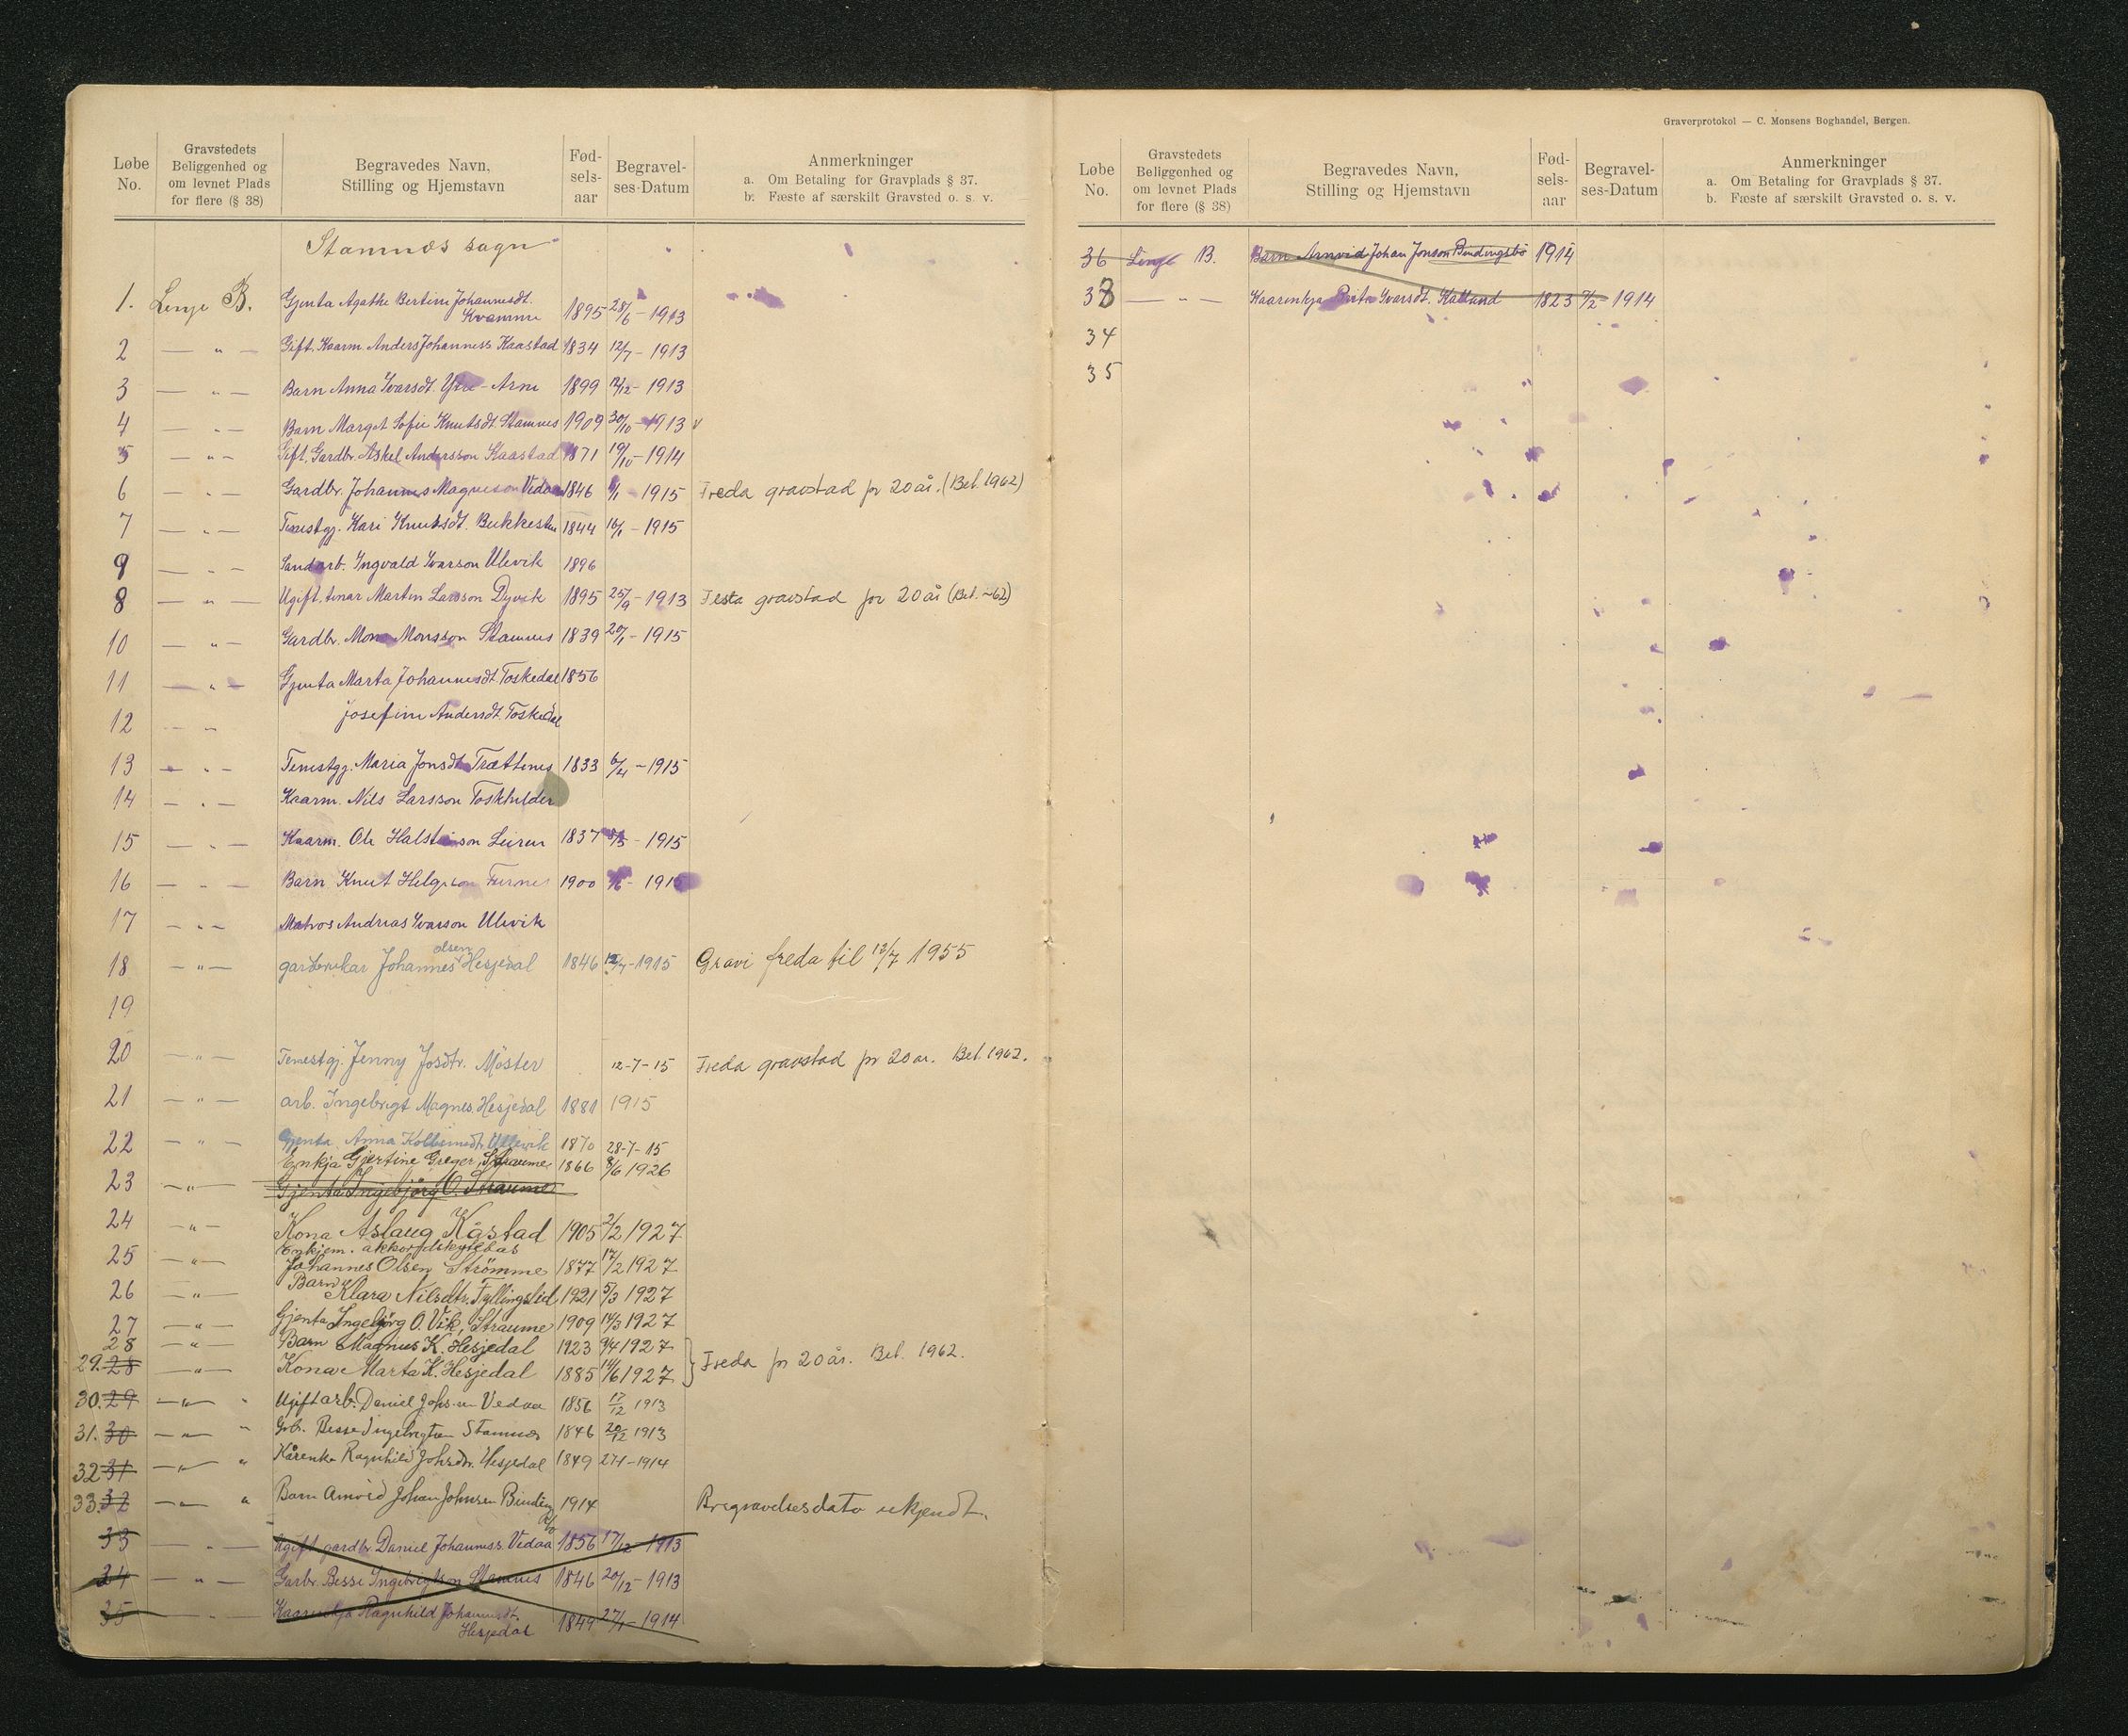 Løbe No. | Gravstedets Beliggenhed og om levnet Plads for flere (§ 38) | Begravedes Navn, Stilling og Hjemstavn | Fød-sels-aar | Begravel-ses-Datum | Anmerkninger a. Om Betaling for Gravplads § 37. b. Fæste af særskilt Gravsted o. s. v.
Stamnes sogn
1. Lenge B. Gjenta Agathe Bertine Johannesdt. Kvamme 1895 28/6 - 1913
2 — " — Gift. Kaarm. Anders Johanness. Kaastad 1834 12/7 - 1913
3 — " — Barn Anna Ivarsdt. Ytre-Arne 1899 - 1913
4 — " — Barn Marget Sofie Knutsdt. Stamnes 1909 30/10 - 1913
5 — " — Gift. Gardbr. Askel Andersson Kaastad 1871 19/10 - 1914
6 — " — Gardbr. Johannes Magnesson Vedaa 1846 - 1915 Freda gravstad pr 20 år. (Bet. 1962)
7 — " — Tenestgj. Kari Knutsdt. Bukkesten 1844 16/1 - 1915
9 — " — Sandarb. Ingvald Ivarson Ulevik 1896
8 — " — Ugift. tenar Martin Larsson Dyvik 1895 25/9 - 1913 Festa gravstad for 20 år (Bet. -62)
10 — " — Gardbr. Mons Monsson Stamnes 1839 20/1 - 1915
11 — " — Gjenta Marta Johannesdt. Toskedal 1856
12 — " Josefine Andersdt. Toskedal
13 — " — Tenestgj. Maria Jonsdt. Trættenes 1833 6/4 - 1915
14 — " — Kaarm. Nils Larsson Toskhilder
15 — " — Kaarm. Ole Halsteinson Leiren 1837 - 1915
16 — " — Barn Knut Helgeson Furnes 1900 - 1915
17 — " — Matros Andreas Ivarson Ulevik
18 — " — gardbrukar Johannes olsen Hesjedal 1846 12/7 - 1915 Gravi freda til 12/7 1955
19
20 — " — Tenestgj. Jenny Josdtr. Möster 12-7-15 Freda gravstad pr 20 år. Bet. 1962.
21 — " — arb. Ingebrigt Magnes. Hesjedal 1881 1915
22 — " — Gjenta Anna Kolbeinsdt. Ullevik 1870 28-7-15
Enkja Gjertine Greger, Straume 1866 8/6 1926
23 — " — Gjenta Ingebjörg O. Straume
24 — " — Kona Aslaug Kåstad 1905 2/2 1927
Enkjem. akkordskyttebas
25 — " — Johannes Olsen Strömme 1877 17/2 1927
26 — " — Barn Klara Nilsdtr. Fyllingslid 1921 5/3 1927
27 — " — Gjenta Ingebjörg O. Vik, Straume 1909 14/3 1927
28 — " — Barn Magnus K. Hesjedal 1923 9/4 1927
29. 28 — " — Kona Marta K. Hesjedal 1885 14/6 1927 } Freda pr 20 år. Bet. 1962.
30. 29 — " — " Ugift arb. Daniel Johs.en Vedaa 1856 17/12 1913
31. 30 — " — " Grb. Besse Ingebrigtsen Stamnes 1846 20/12 1913
32 31 — " — " Kårenke Ragnhild Johsdtr. Hesjedal 1849 27/1 - 1914
33. 32 — " — " Barn Arnvid Johan Johnsen Bindingsbø 1914 Bregravelsesdato ukjendt.
33 — " — Ugift gardbr. Daniel Johanness. Vedaa 1856 17/12 1913
34 — " — Garbr. Besse Ingebrigtson Stamnes 1846 20/12 - 1913
35 — " — Kaarenkja Ragnhild Johannesdt. Hesjedal 1849 27/1 - 1914
Graverprotokol — C. Monsens Boghandel, Bergen.
Løbe No. | Gravstedets Beliggenhed og om levnet Plads for flere (§ 38) | Begravedes Navn, Stilling og Hjemstavn | Fød-sels-aar | Begravel-ses-Datum | Anmerkninger a. Om Betaling for Gravplads § 37. b. Fæste af særskilt Gravsted o. s. v.
36 Lenge B. Barn Arnvid Johan Jonson Bindingsbö 1914
38 — " — Kaarenkja Brita Ivarsdt. Kalland 1823 9/2 - 1914
34
35